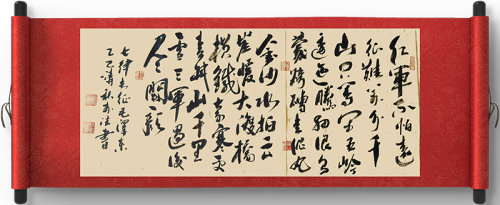 紅軍不怕遠
征難萬水千
山只等閑五岭
逶迤騰細浪烏
蒙磅礴走泥丸
金沙水拍云
崖暖大渡橋
横鐵索寒更
喜岷山千里
雪三軍過後
尽開顔
七律長征毛澤東
乙巳 秋 書